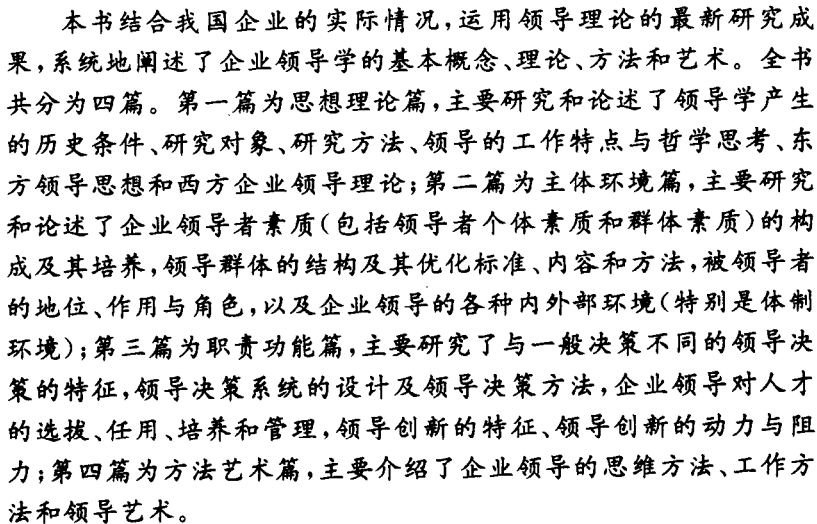 本书结合我国企业的实际情况,运用领导理论的最新研究成
果,系统地阐述了企业领导学的基本概念、理论、方法和艺术。全书
共分为四篇。第一篇为思想理论篇,主要研究和论述了领导学产生
的历史条件、研究对象、研究方法、领导的工作特点与哲学思考、东
方领导思想和西方企业领导理论;第二篇为主体环境篇,主要研究
和论述了企业领导者素质(包括领导者个体素质和群体素质)的构
成及其培养,领导群体的结构及其优化标准、内容和方法,被领导者
的地位、作用与角色,以及企业领导的各种内外部环境(特别是体制
环境);第三篇为职责功能篇,主要研究了与一般决策不同的领导决
策的特征,领导决策系统的设计及领导决策方法,企业领导对人才
的选拔、任用、培养和管理,领导创新的特征、领导创新的动力与阻
力;第四篇为方法艺术篇,主要介绍了企业领导的思维方法、工作方
法和领导艺术。